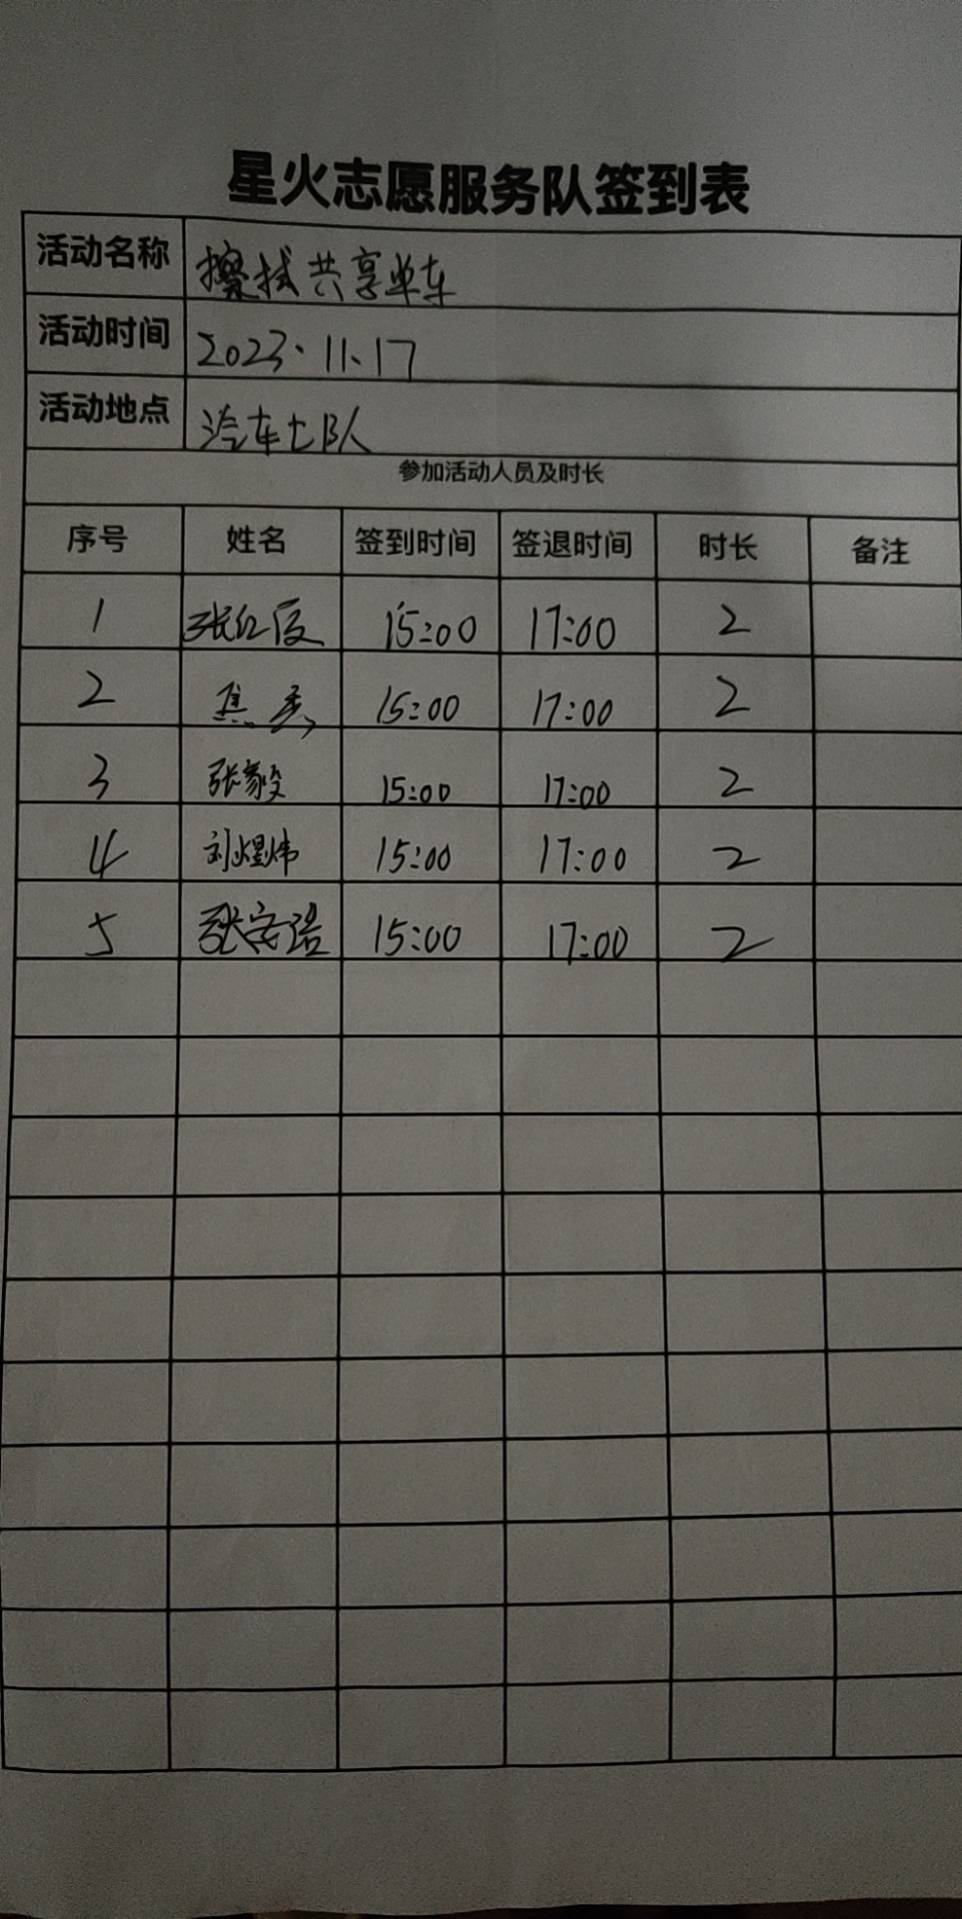 星火志愿服务队签到表
活动名称 擦拭共享单车
活动时间 2023.11.17
活动地点 汽车七队
参加活动人员及时长
序号 姓名 签到时间 签退时间 时长 备注
1 张红 15:00 17:00 2
2 焦 15:00 17:00 2
3 张毅 15:00 17:00 2
4 刘煜炜 15:00 17:00 2
5 张安 15:00 17:00 2